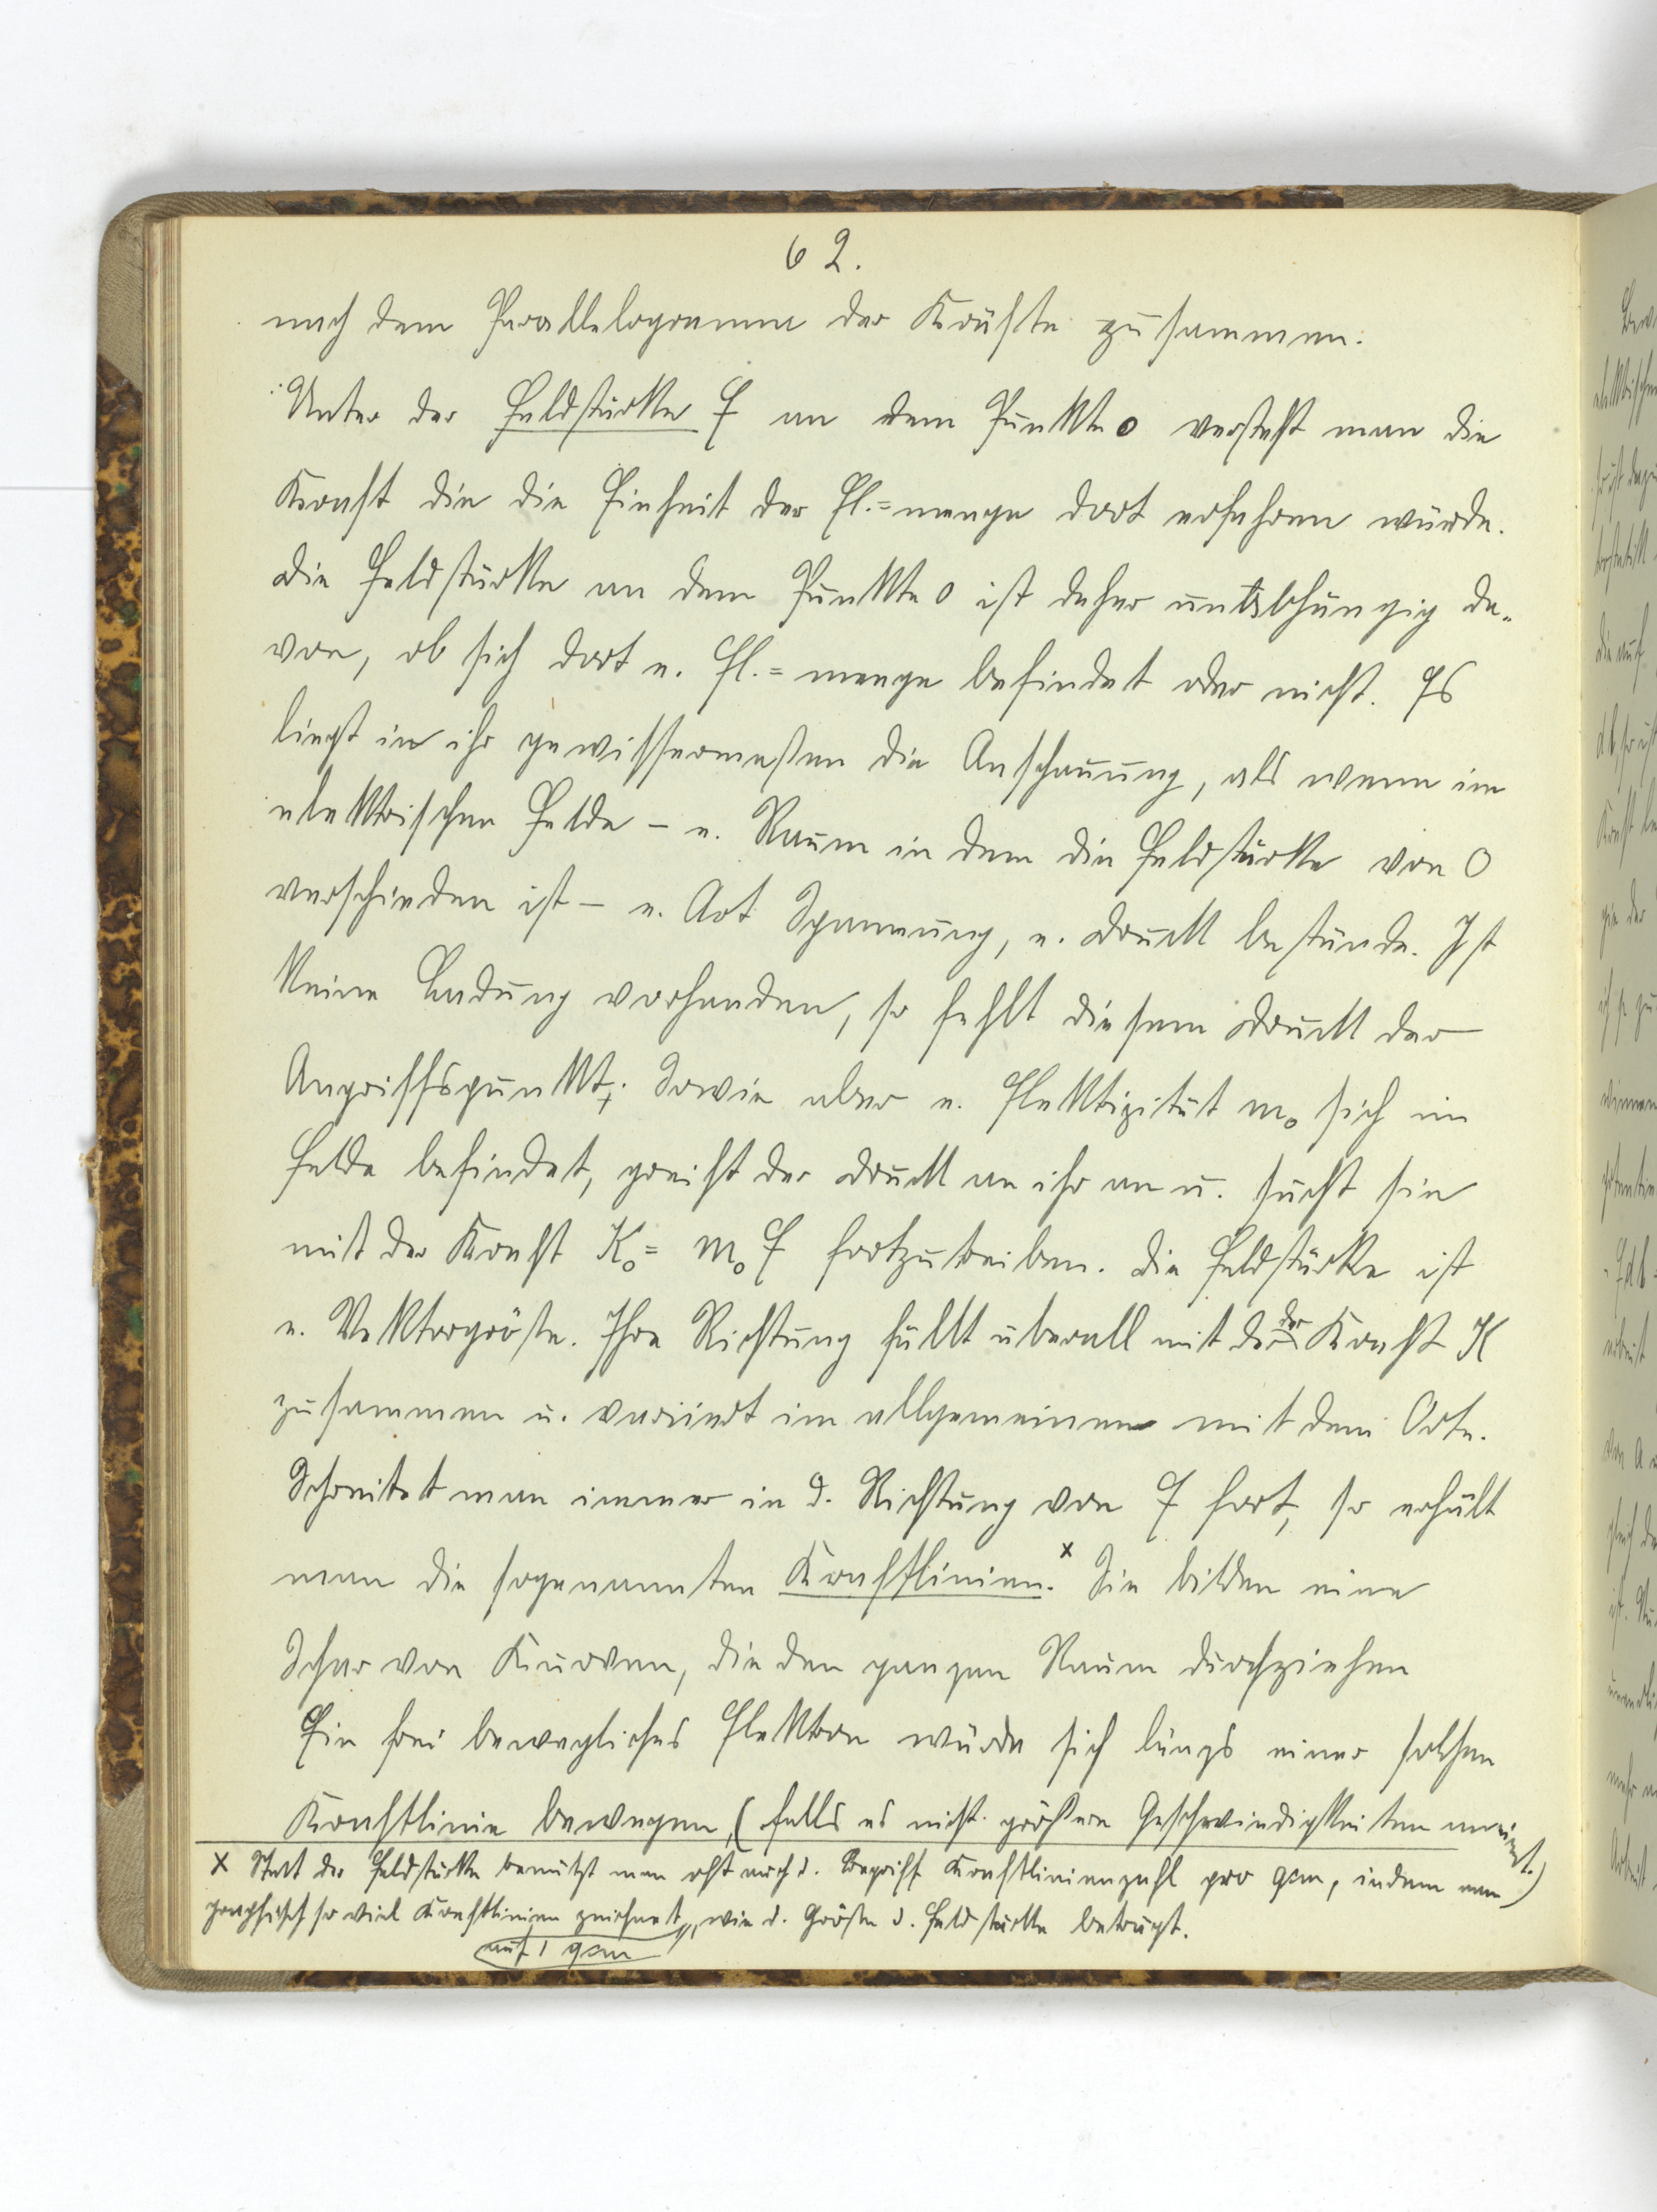 62.
nach dem Parallelogramm der Kräfte zusammen.
Unter der Feldstärke E an dem Punkte o versteht man die
Kraft die die Einheit der El.=menge dort erfahren würde.
Die Feldstärke an dem Punkte o ist daher unabhängig da-
von, ob sich dort e. El.=menge befindet oder nicht. Es
liegt in ihr gewissermaßen die Anschauung, als wenn im
elektrischen Felde – e. Raum in dem die Feldstärke von 0
verschieden ist – e. Art Spannung, e. Druck bestünde. Ist
keine Ladung vorhanden, so fehlt diesem Druck der
Angriffspunkt; Sowie aber e. Elektrizität m₀ sich im
Felde befindet, greift der Druck an ihr an u. sucht sie
mit der Kraft K₀ = m₀ E fortzutreiben. Die Feldstärke ist
e. Vektorgröße. Ihre Richtung fällt überall mit der Kraft K
zusammen u. variiert im allgemeinen mit dem Orte.
Schreitet man immer in d. Richtung von E fort, so erhält
man die sogenannten Kraftlinien.ˣ Sie bilden eine
Schar von Kurven, die den ganzen Raum durchziehen
Ein frei bewegliches Elektron würde sich längs einer solchen
Kraftlinie bewegen, (falls es nicht größere Geschwindigkeiten annimmt.)
x Statt der Feldstärke benützt man oft auch d. Begriff Kraftlinienzahl pro qcm, indem man
graphisch so viel Kraftlinien zeichnet, wie d. Größe d. Feldstärke beträgt.
auf 1 qcm